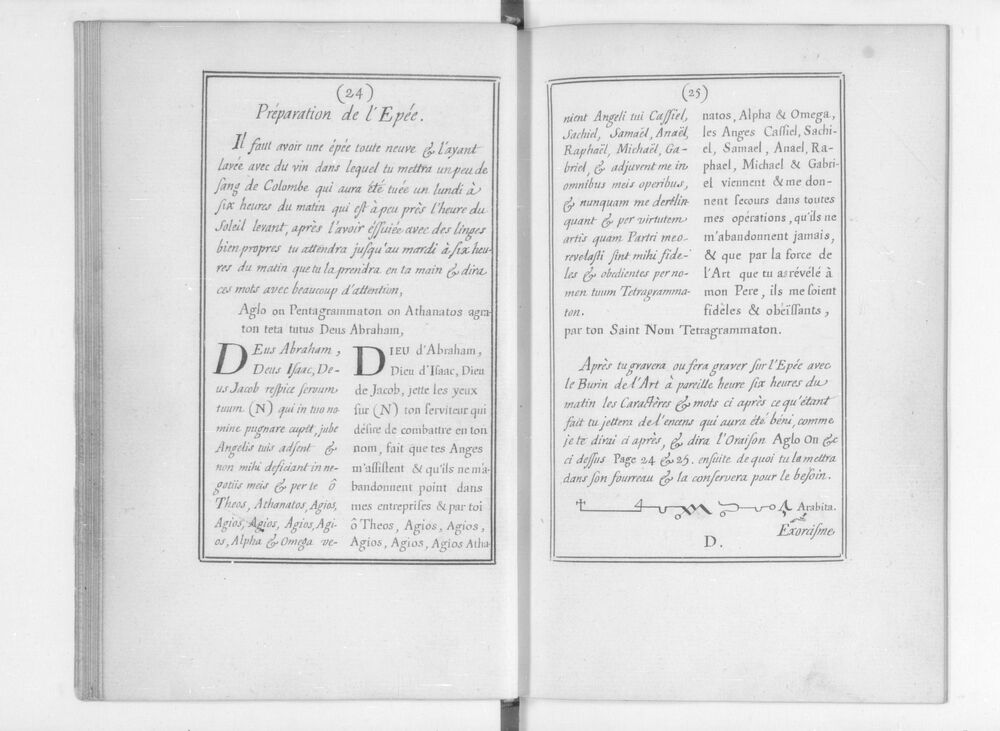 (24)
Préparation de l'Epée.
Il faut avoir une épée toute neuve & l'ayant
lavée avec du vin dans lequel tu mettra un peu de
sang de Colombe qui aura été tuée un lundi à
six heures du matin qui est à peu près l'heure du
Soleil levant, après l'avoir éssuiée avec des linges
bien propres tu attendra jusqu'au mardi à six heu-
res du matin que tu la prendra en ta main & dira
ces mots avec beaucoup d'attention,
Aglo on Pentagrammaton on Athanatos agra-
ton teta tutus Deus Abraham,
DEus Abraham,
Deus Isaac, De-
us Jacob respice servum
tuum (N) qui in tuo no
mine pugnare cupit, jube
Angelis tuis adsent &
non mihi deficiant in ne-
gotiis meis & per te ô
Theos, Athanatos, Agios,
Agios, Agios, Agios, Agi-
os, Alpha & Omega ve-
DIEU d'Abraham,
Dieu d'Isaac, Dieu
de Jacob, jette les yeux
sur (N) ton serviteur qui
désire de combattre en ton
nom, fait que tes Anges
m'assistent & qu'ils ne m'a-
bandonnent point dans
mes entreprises & par toi
ô Theos, Agios, Agios,
Agios, Agios, Agios Atha-
(25)
nient Angeli tui Cassiel,
Sachiel, Samaël, Anaël,
Raphaël, Michaël, Ga-
briel, & adjuvent me in
omnibus meis operibus,
& nunquam me derelin-
quant & per virtutem
artis quam Partri meo
revelasti sint mihi fide-
les & obedientes per no-
men tuum Tetragramma-
ton.
natos, Alpha & Omega,
les Anges Cassiel, Sachi-
el, Samael, Anael, Ra-
phael, Michael & Gabri-
el viennent & me don-
nent secours dans toutes
mes opérations, qu'ils ne
m'abandonnent jamais,
& que par la force de
l'Art que tu as révélé à
mon Pere, ils me soient
fidèles & obéïssants,
par ton Saint Nom Tetragrammaton.
Après tu gravera ou fera graver sur l'Epée avec
le Burin de l'Art à pareille heure six heures du
matin les Caractères & mots ci après ce qu'étant
fait tu jettera de l'encens qui aura été béni, comme
je te dirai ci après, & dira l'Oraison Aglo On &c
ci dessus Page 24 & 25. ensuite de quoi tu la mettra
dans son fourreau & la conservera pour le besoin.
Arabita.
Exorcisme
D.